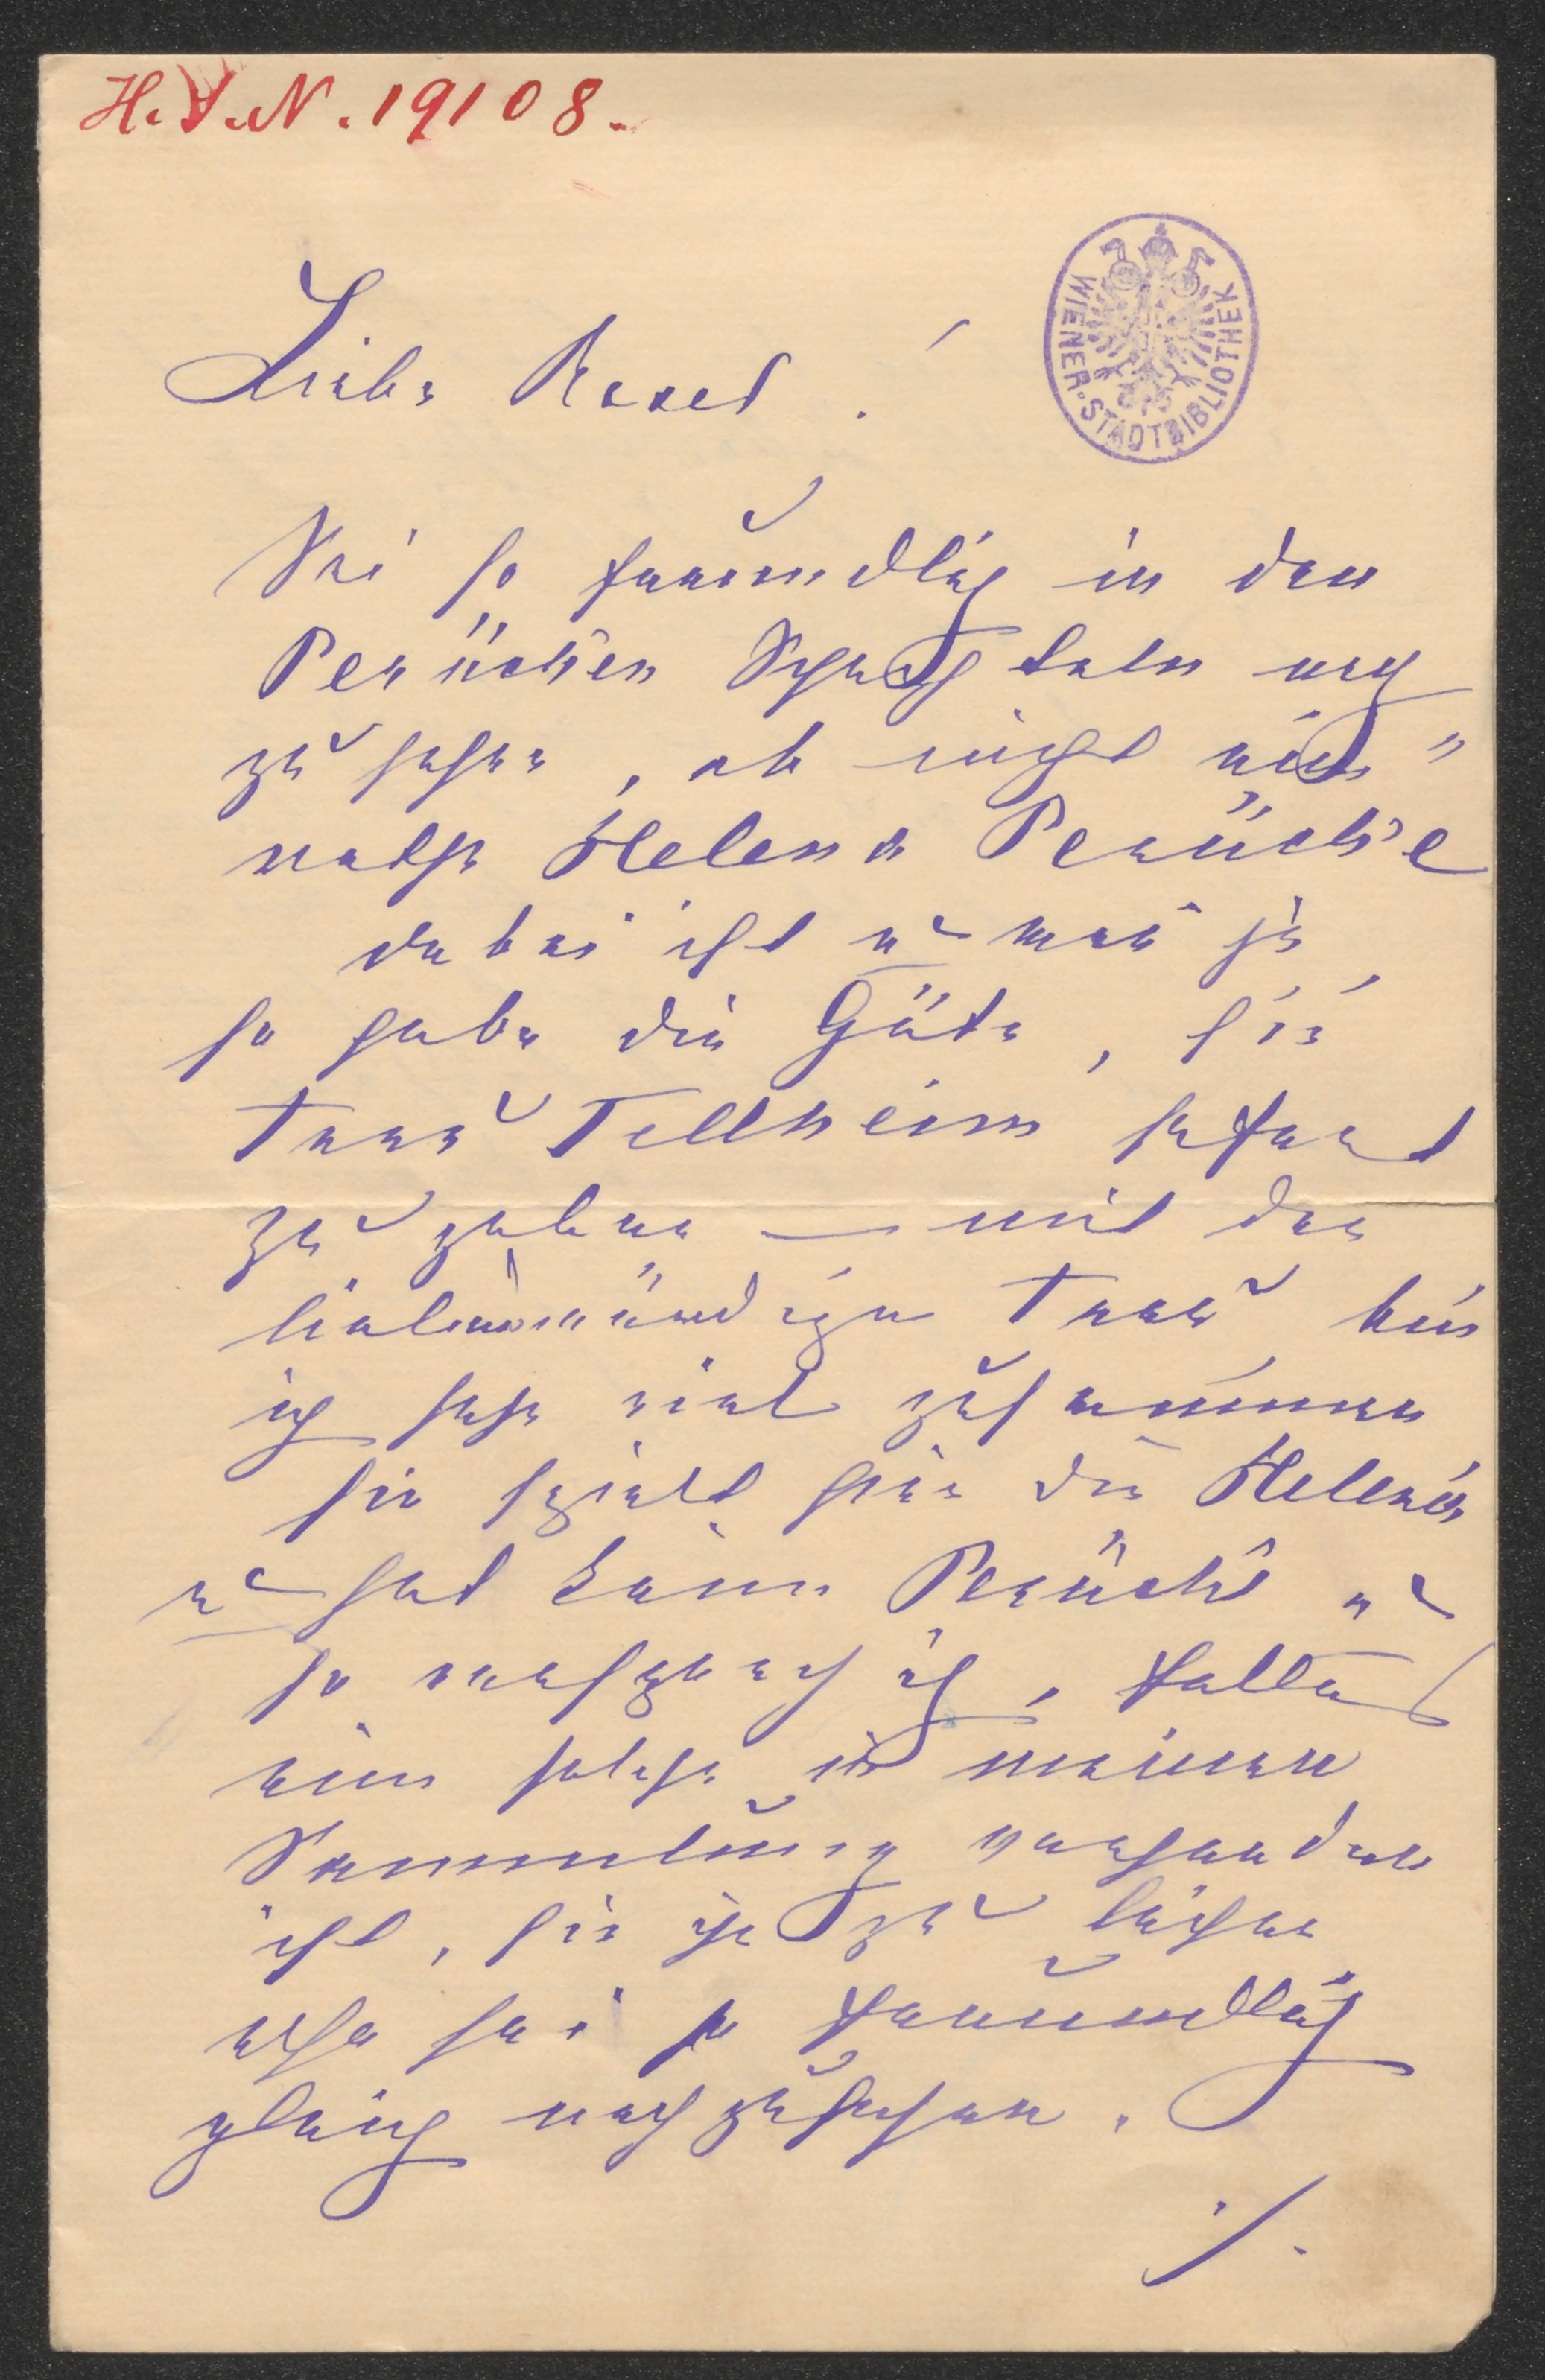 H.I.N. 19108.
WIENER-STADTBIBLIOTHEK
Liebe Rosel !
Sei so freundlich in den
Perücken Schachteln nach
zu sehen, ob nicht eine
rothe Helena Perücke
dabei ist u wenn ja,
so habe die Güte, sie
Frau Tellheim sofort
zu geben — mit der
liebenswürdigen Frau bin
ich sehr viel zusammen
sie spielt hier die Helena
u hat keine Perücke u
so versprach ich, falls
eine solche in meiner
Sammlung vorhanden
ist, sie ihr zu leihen
also sei so freundlich
gleich nachzusehen.
./.